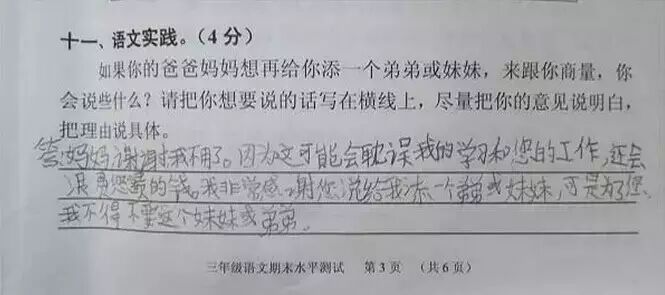 十一、语文实践。(4分)
如果你的爸爸妈妈想再给你添一个弟弟或妹妹，来跟你商量，你
会说些什么？请把你想要说的话写在横线上，尽量把你的意见说明白，
把理由说具体。
答:妈妈谢谢我不用了。因为这可能会耽误我的学习和您的工作,还会
浪费您的钱。我非常感谢您说给我添一个弟弟或妹妹,可是为了您,
我不得不要这个妹妹或弟弟。
三年级语文期末水平测试 第3页 (共6页)